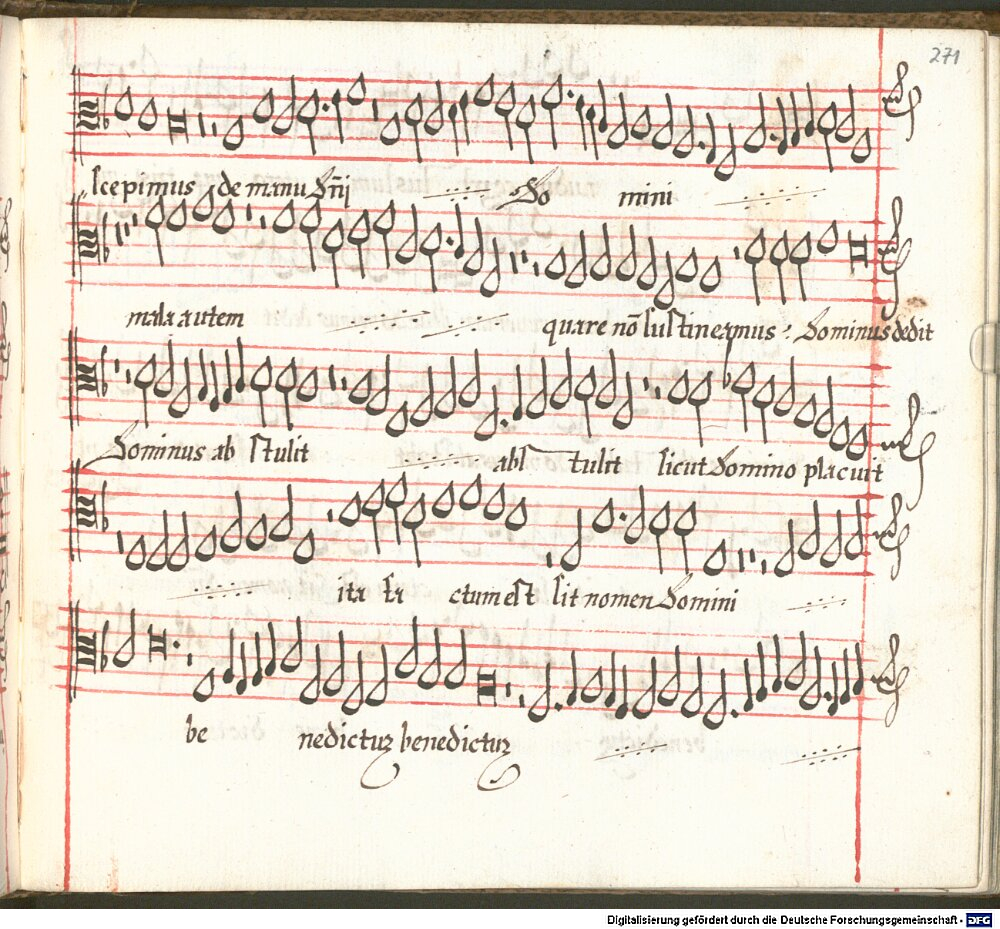 271
scepimus de manu Dñi Do mini
mala autem quare nõ sustineamus : Dominus dedit
Dominus ab stulit abs tulit sicut Domino placuit
ita fa ctum est sit nomen Domini
be nedictuꝫ benedictuꝫ
Digitalisierung gefördert durch die Deutsche Forschungsgemeinschaft - DFG